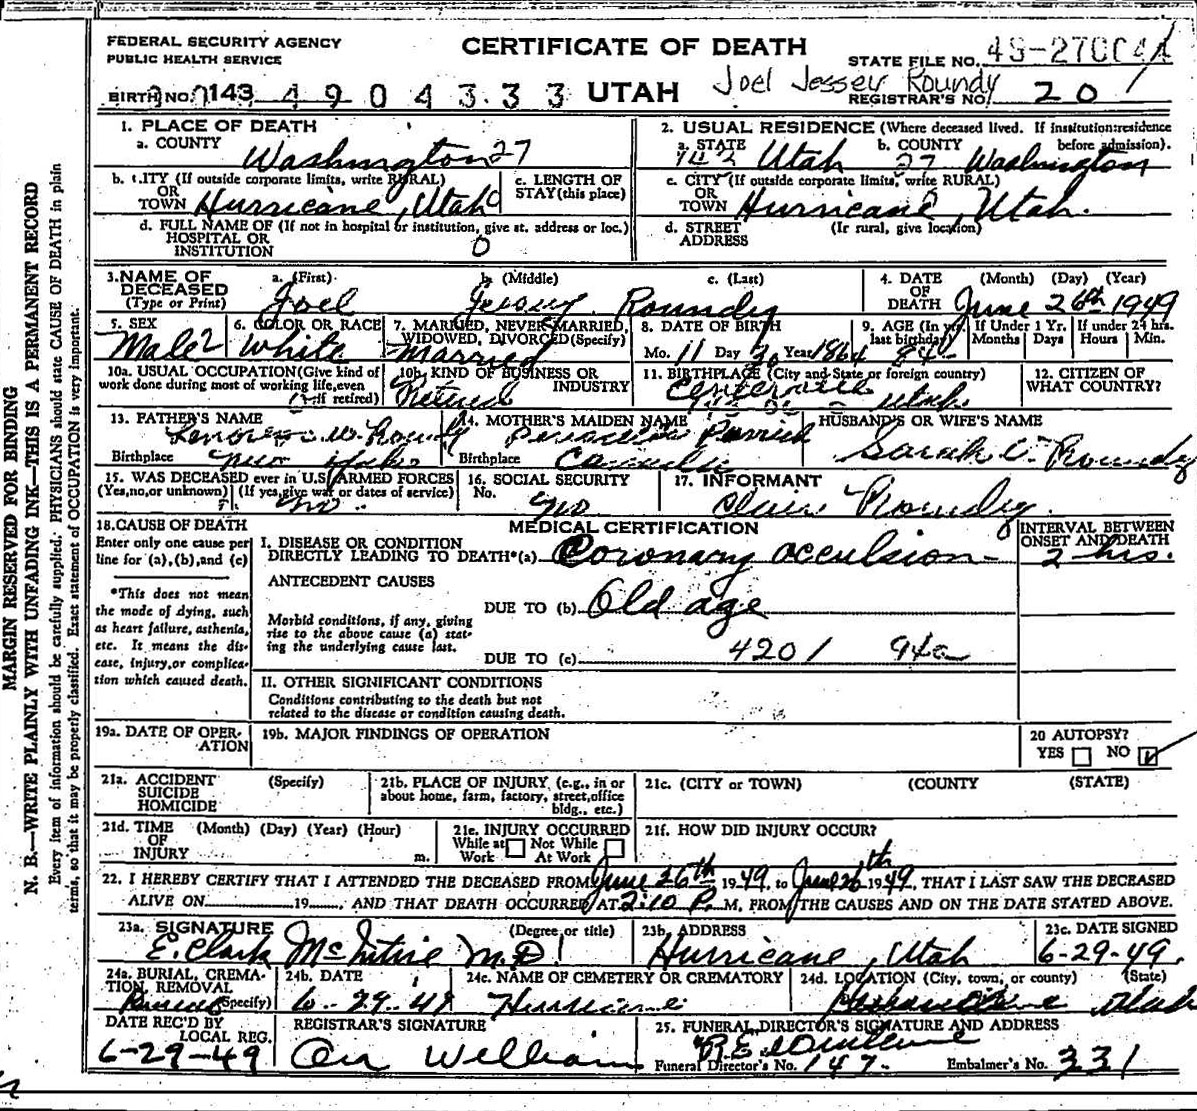 FEDERAL SECURITY AGENCY
PUBLIC HEALTH SERVICE
CERTIFICATE OF DEATH
STATE FILE NO.
BIRTH NO. 143 4904333 UTAH
Joel Jessey Roundy
REGISTRAR'S NO. 20
1. PLACE OF DEATH
a. COUNTY Washington 27
b. CITY (If outside corporate limits, write RURAL)
OR
TOWN Hurricane, Utah
c. LENGTH OF
STAY (this place)
d. FULL NAME OF (If not in hospital or institution, give st. address or loc.)
HOSPITAL OR
INSTITUTION 0
2. USUAL RESIDENCE (Where deceased lived. If institution:residence
before admission).
a. STATE Utah b. COUNTY 27 Washington
c. CITY (If outside corporate limits, write RURAL)
OR
TOWN Hurricane, Utah.
d. STREET (If rural, give location)
ADDRESS
3. NAME OF a. (First) b. (Middle) c. (Last)
DECEASED
(Type or Print) Joel Roundy
4. DATE (Month) (Day) (Year)
OF
DEATH June 26th 1949
5. SEX
Male 2
6. COLOR OR RACE
White
7. MARRIED, NEVER MARRIED,
WIDOWED, DIVORCED (Specify)
Married
8. DATE OF BIRTH
Mo. 11 Day 30 Year 1864
9. AGE (In yrs. last birthday)
84
If Under 1 Yr.
Months Days
If under 24 hrs.
Hours Min.
10a. USUAL OCCUPATION (Give kind of
work done during most of working life, even
if retired)
10b. KIND OF BUSINESS OR
INDUSTRY
Retired
11. BIRTHPLACE (City and State or foreign country)
Centerville
Utah
12. CITIZEN OF
WHAT COUNTRY?
13. FATHER'S NAME
W. Roundy
Birthplace New
14. MOTHER'S MAIDEN NAME
Parrish
Birthplace Canada
HUSBAND'S OR WIFE'S NAME
Sarah C. Roundy
15. WAS DECEASED ever in U.S. ARMED FORCES
(Yes,no,or unknown) (If yes, give war or dates of service)
no
16. SOCIAL SECURITY
No. no
17. INFORMANT
Roundy
18. CAUSE OF DEATH
Enter only one cause per
line for (a),(b),and (c)
*This does not mean
the mode of dying, such
as heart failure, asthenia,
etc. It means the dis-
ease, injury, or complica-
tion which caused death.
MEDICAL CERTIFICATION
I. DISEASE OR CONDITION
DIRECTLY LEADING TO DEATH*(a) Coronary occulsion
ANTECEDENT CAUSES
DUE TO (b) Old age
Morbid conditions, if any, giving
rise to the above cause (a) stat-
ing the underlying cause last.
DUE TO (c) 4201 94a
INTERVAL BETWEEN
ONSET AND DEATH
2 hrs.
II. OTHER SIGNIFICANT CONDITIONS
Conditions contributing to the death but not
related to the disease or condition causing death.
19a. DATE OF OPER-
ATION
19b. MAJOR FINDINGS OF OPERATION
20 AUTOPSY?
YES NO
21a. ACCIDENT (Specify)
SUICIDE
HOMICIDE
21b. PLACE OF INJURY (e.g., in or
about home, farm, factory, street, office
bldg., etc.)
21c. (CITY or TOWN) (COUNTY) (STATE)
21d. TIME (Month) (Day) (Year) (Hour)
OF
INJURY m.
21e. INJURY OCCURRED
While at Not While
Work At Work
21f. HOW DID INJURY OCCUR?
22. I HEREBY CERTIFY THAT I ATTENDED THE DECEASED FROM June 26th 1949, to June 26th 1949, THAT I LAST SAW THE DECEASED
ALIVE ON 19 , AND THAT DEATH OCCURRED AT 2:10 P. M, FROM THE CAUSES AND ON THE DATE STATED ABOVE.
23a. SIGNATURE (Degree or title)
E. Clark McIntire M.D.
23b. ADDRESS
Hurricane, Utah
23c. DATE SIGNED
6-29-49.
24a. BURIAL, CREMA-
TION, REMOVAL
(Specify)
24b. DATE
6-29-49
24c. NAME OF CEMETERY OR CREMATORY
Hurricane
24d. LOCATION (City, town, or county) (State)
Utah
DATE REC'D BY
LOCAL REG.
6-29-49
REGISTRAR'S SIGNATURE
25. FUNERAL DIRECTOR'S SIGNATURE AND ADDRESS
Funeral Director's No. 147. Embalmer's No. 331
MARGIN RESERVED FOR BINDING
N. B.—WRITE PLAINLY WITH UNFADING INK—THIS IS A PERMANENT RECORD
Every item of information should be carefully supplied. PHYSICIANS should state CAUSE OF DEATH in plain
terms, so that it may be properly classified. Exact statement of OCCUPATION is very important.